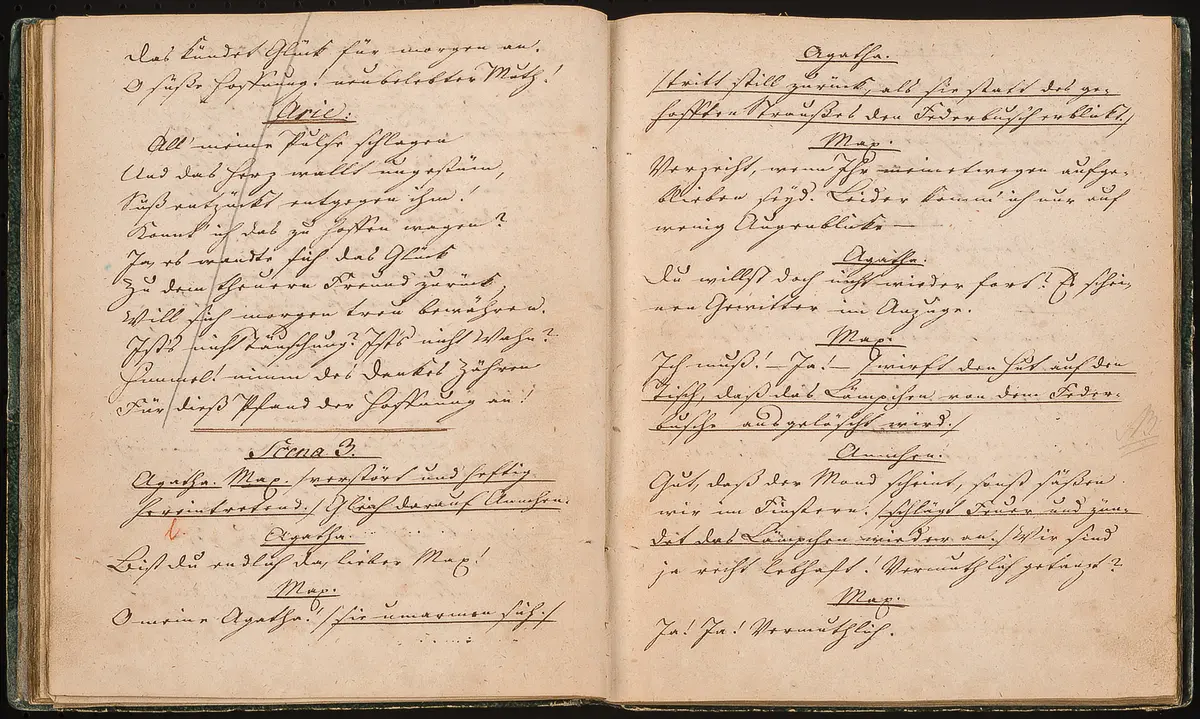 Das kündet Glück für morgen an.
O süße Hoffnung! neubelebter Muth!
Arie:
All' meine Pulse schlagen
Und das Herz wallt ungestüm,
Süß entzückt entgegen ihm!
Konnt' ich das zu hoffen wagen?
Ja, es wandte sich das Glück
Zu dem theuern Freund zurück,
Will sich morgen treu bewähren.
Ists nicht Täuschung? Ists nicht Wahn?
Himmel! nimm des Dankes Zähren
Für dieß Pfand der Hoffnung an!
Scena 3.
Agatha. Max. /verstört und heftig
hereintretend./ Gleich darauf Annchen.
Agatha.
Bist du endlich da, lieber Max!
Max.
O meine Agatha! /sie umarmen sich./
Agatha.
/tritt still zurück, als sie statt des ge-
hofften Straußes den Federbusch erblickt./
Max.
Verzeiht, wenn Ihr meinetwegen aufge-
blieben seyd. Leider komm' ich nur auf
wenig Augenblicke —
Agatha.
Du willst doch nicht wieder fort? Es schei-
nen Gewitter im Anzuge.
Max.
Ich muß! — Ja! — /wirft den Hut auf den
Tisch, daß das Lämpchen von dem Feder-
busche ausgelöscht wird./
Annchen.
Gut, daß der Mond scheint, sonst säßen
wir im Finstern. /schlägt Feuer und zün-
det das Lämpchen wieder an./ Wir sind
ja recht lebhaft! Vermuthlich getanzt?
Max.
Ja! Ja! Vermuthlich.